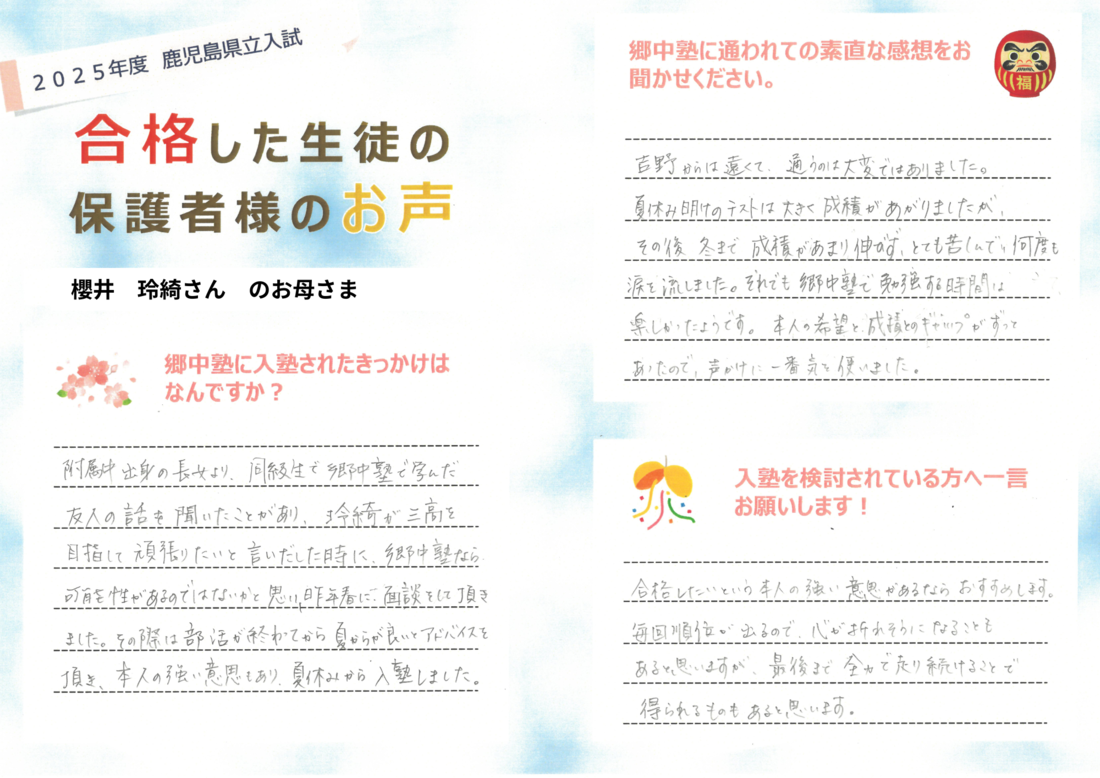 2025年度 鹿児島県立入試
合格した生徒の
保護者様のお声
櫻井 玲綺さん のお母さま
郷中塾に入塾されたきっかけは
なんですか？
附属中出身の長女より、同級生で郷中塾で学んだ
友人の話を聞いたことがあり、玲綺が三高を
目指して頑張りたいと言いだした時に、郷中塾なら
可能性があるのではないかと思い、昨年春に面談をして頂き
ました。その際は部活が終わってから夏からが良いとアドバイスを
頂き、本人の強い意思もあり、夏休みから入塾しました。
郷中塾に通われての素直な感想をお
聞かせください。
福
吉野からは遠くて、通うのは大変ではありました。
夏休み明けのテストは大きく成績があがりましたが、
その後、冬まで成績があまり伸びず、とても苦しんでいて何度も
涙を流しました。それでも郷中塾で勉強する時間は
楽しかったようです。本人の希望と、成績とのギャップがずっと
あったので、声かけに一番気を使いました。
入塾を検討されている方へ一言
お願いします！
合格したいという本人の強い意思があるならおすすめします。
毎回順位が出るので、心が折れそうになることも
あると思いますが、最後まで全力で走り続けることで
得られるものもあると思います。